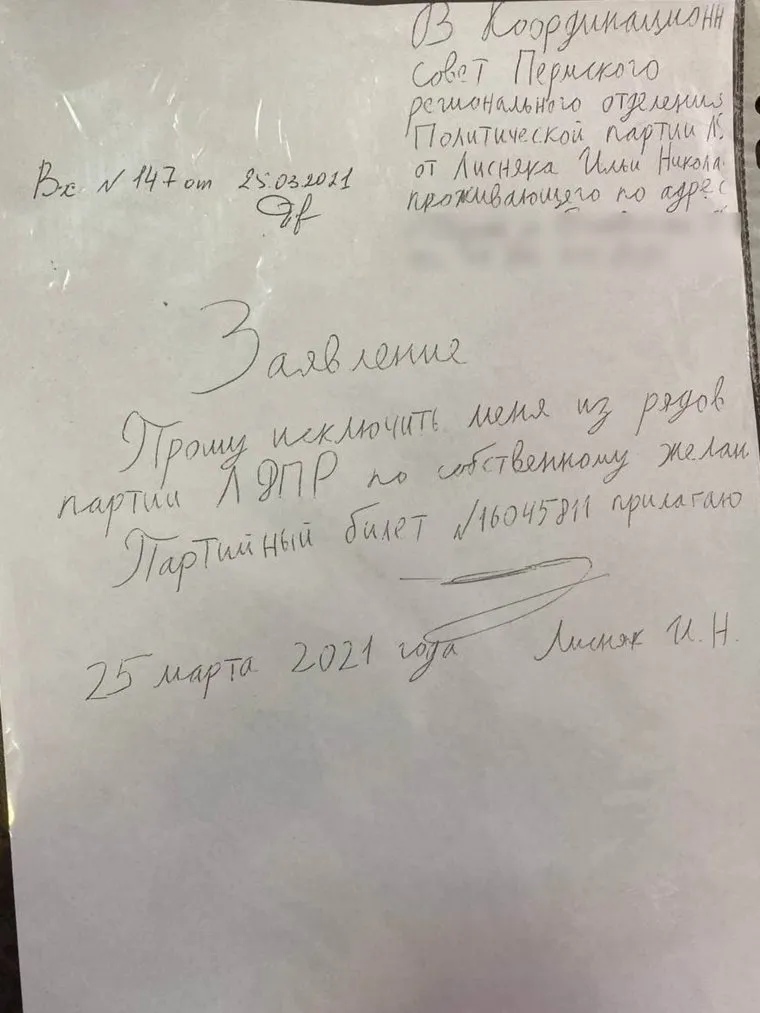 В Координационн
совет Пермского
регионального отделения
Политической партии Л
от Лисняка Ильи Никола
проживающего по адрес
Вх N 147 от 25.03.2021
Заявление
Прошу исключить меня из рядов
партии ЛДПР по собственному желан
Партийный билет №16045811 прилагаю
25 марта 2021 года Лисняк И.Н.